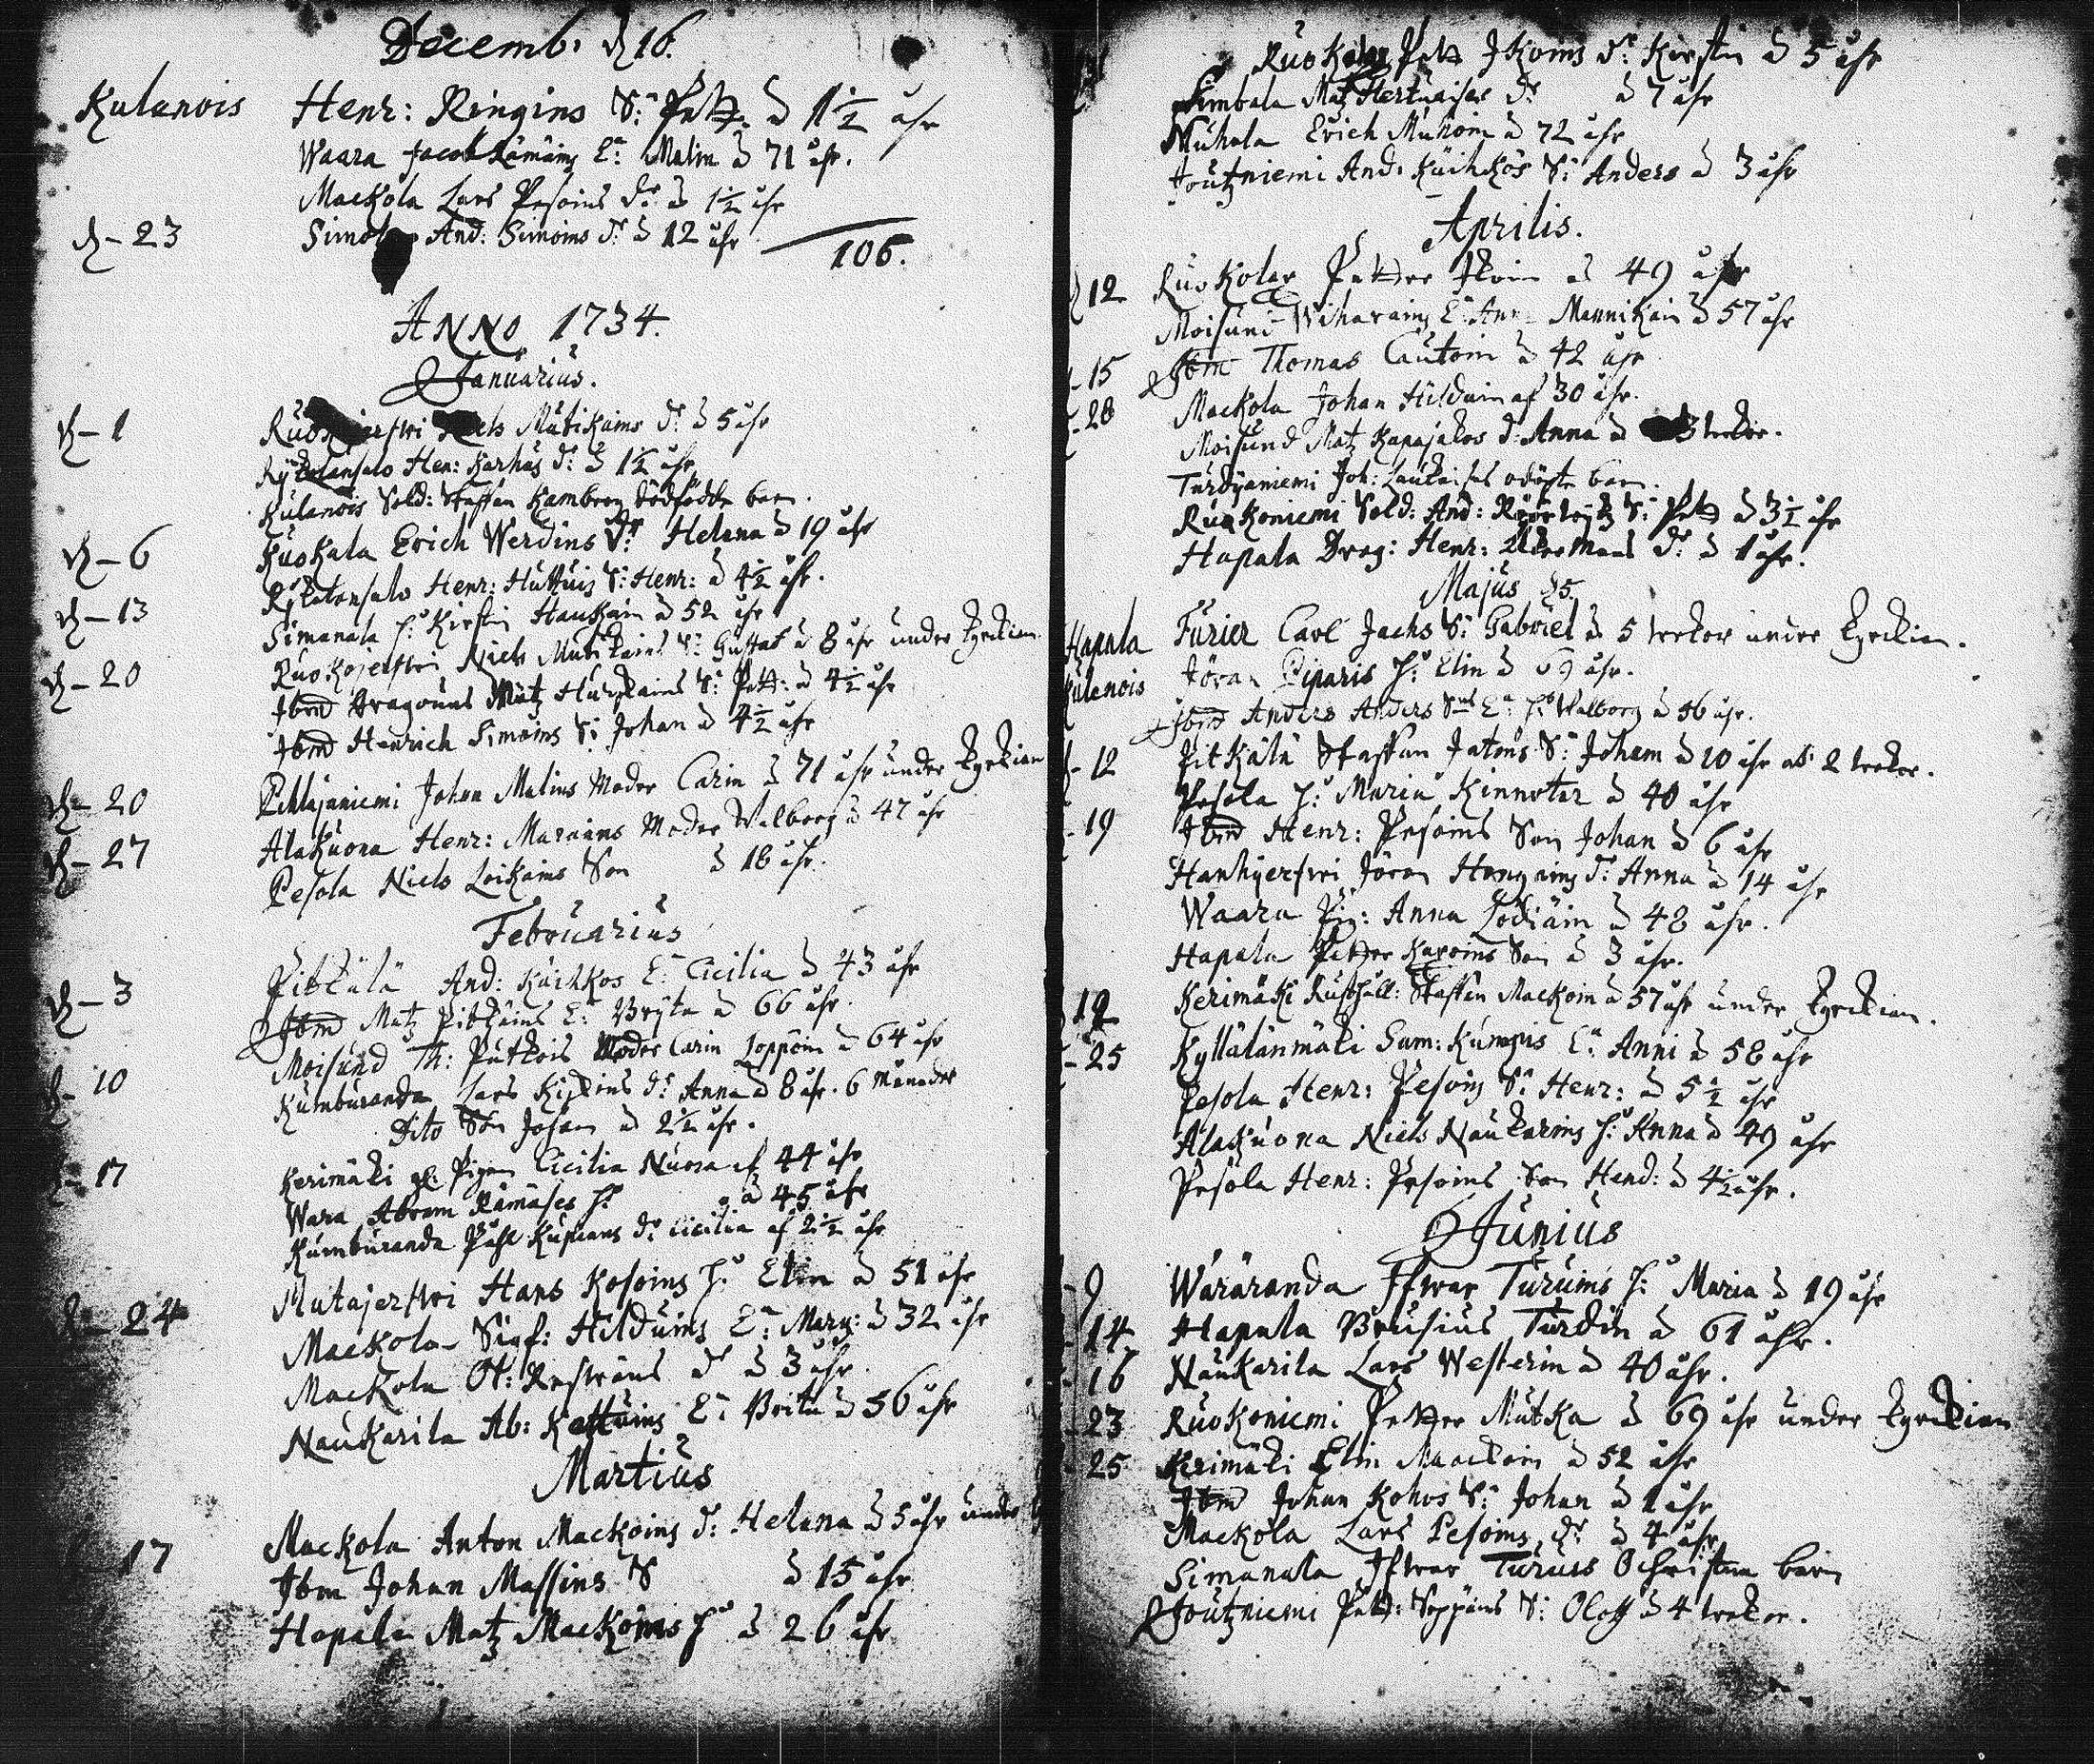 Decemb: d 16.
Kulanois Henr: Ringins S: Pett: a 1½ åhr
Waara Jacob Rämäins E: Malin a 71 åhr.
Mackola Lars Pesoins dr a 1½ åhr
d - 23 And: Simoins dr a 12 åhr 106.
ANNO 1734.
Januarius.
d - 1 Mutikains dr a 5 åhr
Hen: Karhus dr a 1½ åhr
Kulanois Sold: Staffan Kamberg dödfödde barn.
d - 6 Kuokala Erich Werdins dr Helena a 19 åhr
Henr: Huttuis S: Henr: a 4½ åhr.
d - 13 Simanala h: Kirstin Haukain a 52 åhr
d - 20 Ruokojerfwi Niels Mutikains S: Gustaf a 8 åhr under Kyrckian.
Ibm Dragouns Matz S: Pett: a 4½ åhr
Ibm Henrich Simoins S: Johan a 4½ åhr
d - 20 Pihlajaniemi Johan Malins Moder Carin a 71 åhr under Kyrckian
d - 27 Alakuona Henr: Moder Walborg a 47 åhr
Pesola Niels Loikains Son a 18 åhr.
Februarius
d - 3 Pitkälä And: Käihkös E: Cicilia a 43 åhr
Ibm Matz Pitkäins E: Bryta a 66 åhr.
Moisund Th: Putkois Moder Carin Loppoin a 64 åhr
d - 10 Kumburanda Lars dr Anna a 8 åhr. 6 Månader
Dito Son Johan a 2½ åhr.
17 Kerimäki gl. Pigan Cicilia Nuora af 44 åhr
Wara Abram Rämäses h: a 45 åhr
Kumburanda Påhl dr Cicilia af 2½ åhr
d - 24 Mutajerfwi Hans Kosoins h: Elin a 51 åhr
Mackola Sigf: Hilduins E: Marg: a 32 åhr
Mackola Ol: dr a 3 åhr
Naukarila Ab: Kettuins E: Brita a 56 åhr
Martius
Mackola Anton Mackoins d: Helena a 5 åhr under
17 Ibm Johan Massins S a 15 åhr
Hapala Matz Mackoins h: a 26 åhr
Pett Ikoins dr Kirstin a 5 åhr
Simbala Matz dr a 7 åhr
Muhola Erich Muhoin a 72 åhr
Joutzniemi And: Käihkös S: Anders a 3 åhr
Aprilis.
12 Ruokolax Petter Ikoin a 49 åhr
Moisund Wiharains E: Anna Mannikain a 57 åhr
- 15 Ibm Thomas Cautoin a 42 åhr
- 28 Mackola Johan Hilduin af 30 åhr.
Moisund Matz Kapajakos d: Anna a 3 weckor.
Turdyaniemi Joh: odöpte barn.
Ruokoniemi Sold: And: S: Pett a 3½ åhr
Hapala Drag: Henr: dr a 1 åhr.
Majus d 5.
Hapala Furier Carl Jachs S: Gabriel a 5 weckor under Kyrckian.
Kulenois Jöran Piparis h: Elin a 69 åhr.
Ibm Anders Anders Sons E: h: Walborg a 56 åhr.
- 12 Pitkälä Staffan S: Joham a 10 åhr 2 weckor.
Pesola h: Maria Kinnotar a 40 åhr
- 19 Ibm Henr: Pesoins Son Johan a 6 åhr
Hanhyerfwi Jöran dr Anna a 14 åhr
Waara Pig: Anna a 48 åhr.
Hapala Petter Karoins Son a 3 åhr.
19 Kerimäki Rusthåll: Staffan Mackoin a 57 åhr under Kyrckian.
- 25 Kyllälänmäki Sam: Kumpis E: Anni a 58 åhr
Pesola Henr: Pesoins S: Henr: a 5½ åhr
Alakuona Niels Naukarins h: Anna a 49 åhr
Pesola Henr: Pesoins Son Hend: a 4½ åhr.
Junius
- 9 Wararanda Ifwar Turuins h: Maria a 19 åhr
- 14 Hapala Brusius Turdin a 61 åhr.
16 Naukarila Lars Westerin a 40 åhr.
23 Ruokoniemi Petter Mutka a 69 åhr under Kyrckian
25 Kerimäki Elin Maackoin a 52 åhr
Ibm Johan Kohos S: Johan a 1 åhr
Mackola Lars Pesoins dr a 4 åhr
Simanala Ifwar Turuis Ochristna barn
Joutzniemi Pett: Seppäins S: Oloff a 4 weckor.